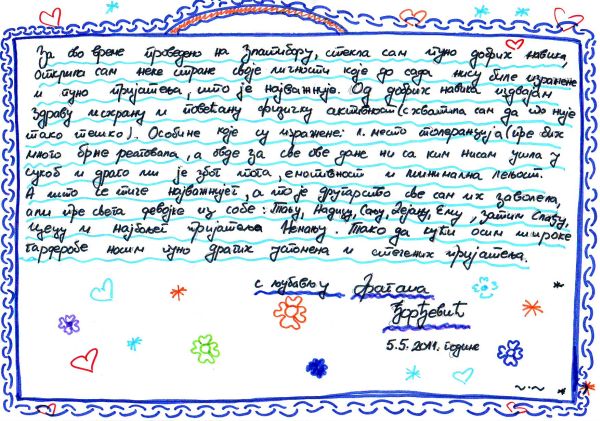 За ово време проведено на Златибору, стекла сам пуно добрих навика,
открила сам неке стране своје личности које до сада нису биле изражене
и пуно пријатеља, што је најважније. Од добрих навика издвајам
здраву исхрану и повећану физичку активност (схватила сам да то није
тако тешко). Особине које су изражене: 1. место толеранција (пре бих
много брже реаговала, а овде за све ове дане ни са ким нисам ушла у
сукоб и драго ми је због тога, емотивност и минимална лењост.
А што се тиче најважнијег, а то је другарство све сам их заволела,
али пре света девојке из собе: Тању, Надицу, Сању, Дејану, Ену, затим Слађу,
Цецу и најбољег пријатеља Ненању. Тако да кући осим широке
гардеробе носим пуно драгих успомена и стегених пријатеља.
с љубављу Драгана
Ђорђевић
5.5.2011. године